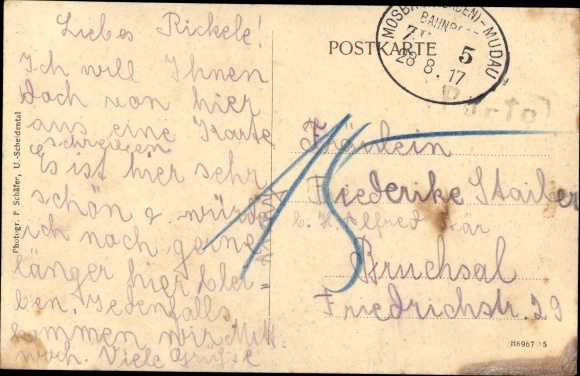 Liebes Rickele!
Ich will Ihnen
doch von hier
aus eine Karte
schreiben
Es ist hier sehr
schön & würde
ich noch gerne
länger hier blei=
ben. Jedenfalls
kommen wir Mitt=
woch. Viele Grüsse
Photogr. F. Schäfer, U.-Scheidental
POSTKARTE
MOSBACH (BADEN)-MUDAU
BAHNPOST
5
28 8. 17
Porto
15
Fräulein
Friederike Staiber
b. H. Alfred Bär
Bruchsal
Friedrichstr. 29
H6967 15